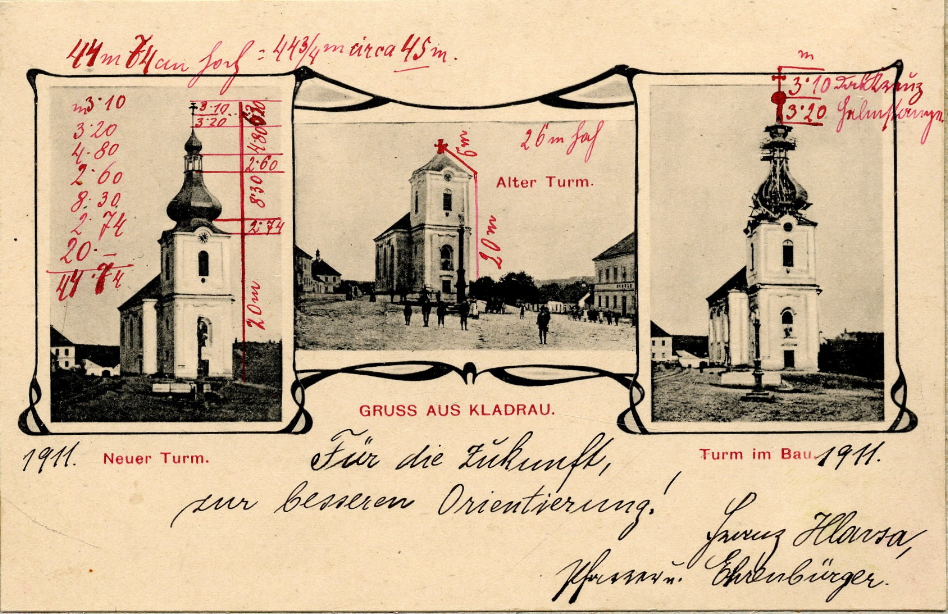 44m 74cm hoch = 44 3/4 m circa 45 m.
m 3·10
3·20
4·80
2·60
8·30
2·74
20·—
44·74
3·10
3·20
6·30
4·80
2·60
8·30
2·74
20 m
26 m hoch
6 m
Alter Turm.
20 m
m
3·10
3·20 Helmstange
GRUSS AUS KLADRAU.
1911. Neuer Turm.
Turm im Bau. 1911.
Für die Zukunft,
zur besseren Orientierung!
Franz Hlavsa,
Pfarrer u. Ehrenbürger.